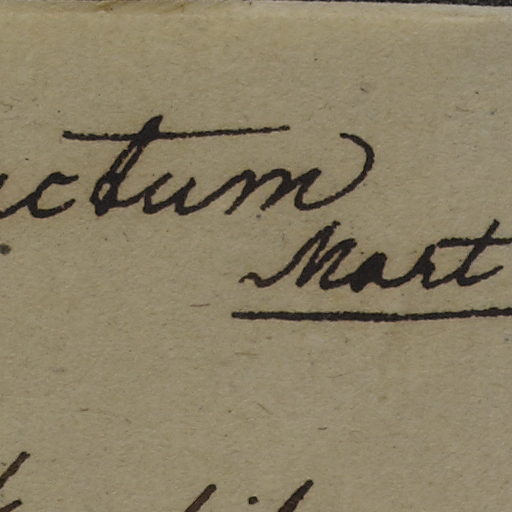 ctum
Mart